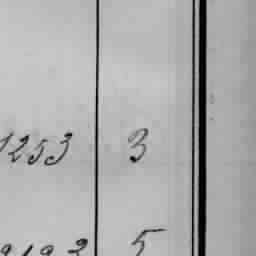 1253 3
5